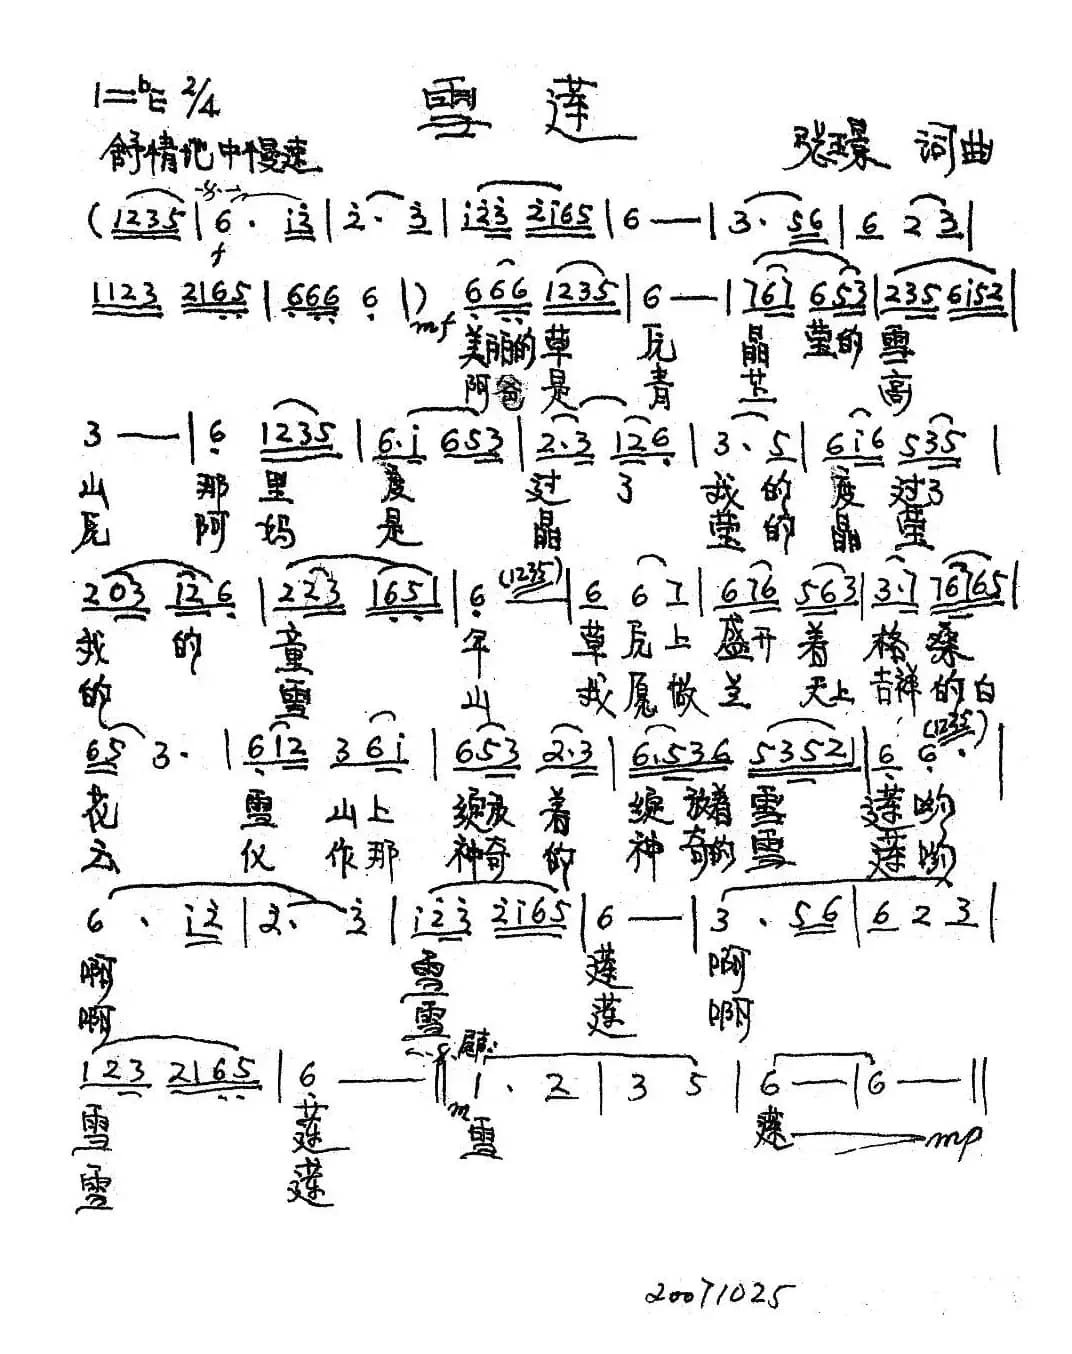 雪莲
1=♭E 2/4
舒情地中慢速
张玉景 词曲
(1235|6·i2|2·3|i23 2i65|6—|3·56|6 2 3|
f
1123 2165|666 6|) 666 1235|6—|767 653|235 6i52|
mf
美丽的草 原 晶 莹的 雪
阿爸 是 青 芷 高
3—|6 1235|6·i 653|2·3 126|3·5|6i6 535|
山 那 里 度 过 了 我 的 度 过了
原 阿 妈 是 晶 莹 的 晶 莹
203 126|223 1651|6 (1235)|6 6 7|676 563|3·7 76765|
我 的 童 年 草 原 上 盛开 着 格 桑
的 雪 山 我 愿 做 兰 天上 吉祥 的白
65 3·|6i2 3 6i|653 2·3|6·536 5352|6 6· (1235)|
花 雪 山上 绽放 着 绽 放着 雪 莲 哟
云 伩 作那 神奇 的 神 奇的 雪 莲 哟
6·i2|2·3|i23 2i65|6—|3·56|6 2 3|
啊 雪 莲 啊
啊 雪 莲 啊
尾声:
123 2165|6—‖1·2|3 5|6—|6—‖
m
雪 莲 雪 莲 mp
雪 莲
20071025